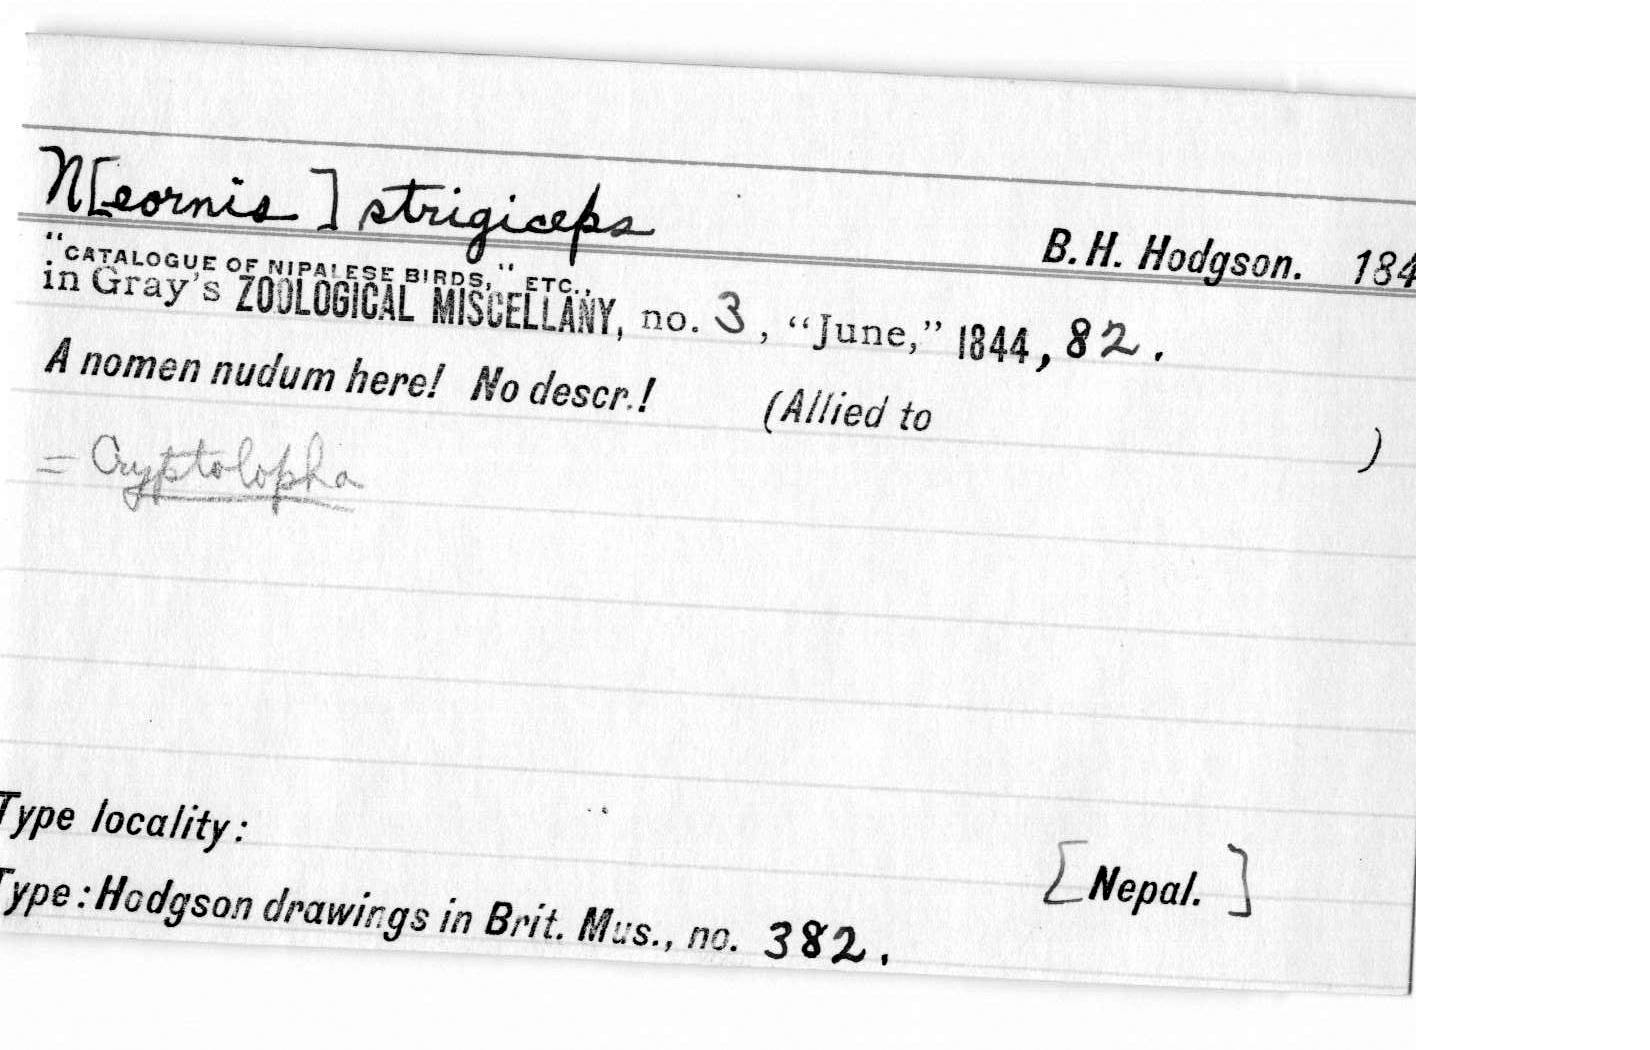 N[eornis] strigiceps
B. H. Hodgson. 184
"CATALOGUE OF NIPALESE BIRDS," ETC.,
in Gray's ZOOLOGICAL MISCELLANY, no. 3, "June," 1844, 82.
A nomen nudum here! No descr.! (Allied to )
= Cryptolopha
Type locality: [Nepal.]
Type: Hodgson drawings in Brit. Mus., no. 382.